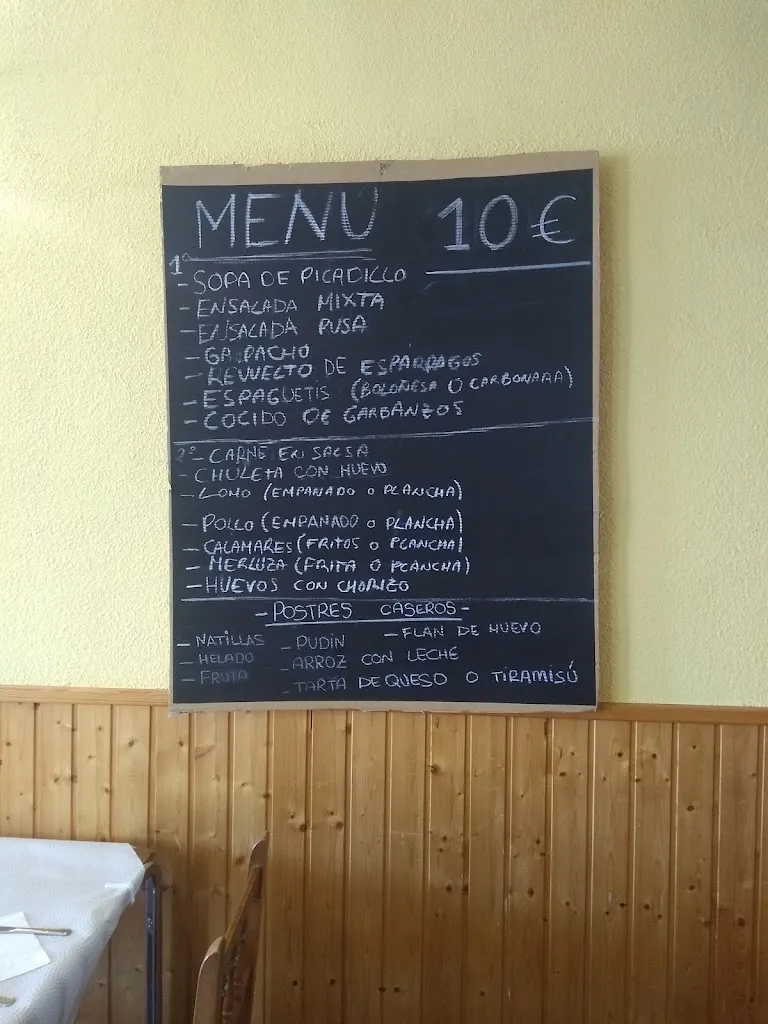 MENU 10€
1º
- SOPA DE PICADILLO
- ENSALADA MIXTA
- ENSALADA RUSA
- GAZPACHO
- REVUELTO DE ESPÁRRAGOS
- ESPAGUETIS (BOLOÑESA O CARBONARA)
- COCIDO DE GARBANZOS
2º - CARNE EN SALSA
- CHULETA CON HUEVO
- LOMO (EMPANADO O PLANCHA)
- POLLO (EMPANADO O PLANCHA)
- CALAMARES (FRITOS O PLANCHA)
- MERLUZA (FRITA O PLANCHA)
- HUEVOS CON CHORIZO
- POSTRES CASEROS -
- NATILLAS - PUDIN - FLAN DE HUEVO
- HELADO - ARROZ CON LECHE
- FRUTA - TARTA DE QUESO O TIRAMISÚ